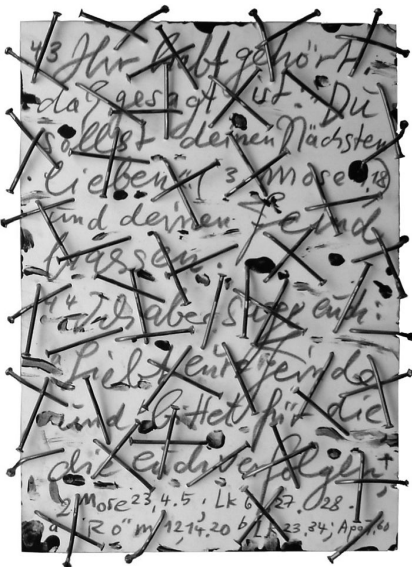 43 Ihr habt gehört,
daß gesagt ist: "Du
sollst deinen Nächsten
lieben" (3. Mose 19,18)
und deinen Feind
hassen.
44 Ich aber sage euch:
Liebt eure Feinde
und bittet für die
die euch verfolgen,
2 Mose 23,4.5; Lk 6,27.28
a Röm 12,14.20 b Lk 23,34; Apg 7,60